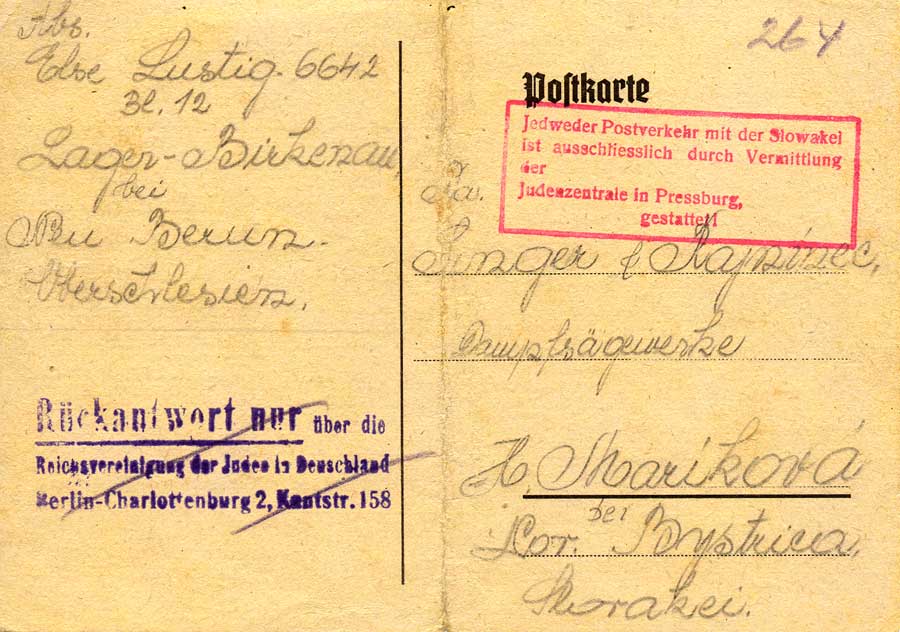 Abs.
Else Lustig. 6642
Bl. 12
Lager-Birkenau,
bei
Neu Berun.
Oberschlesien.
Rückantwort nur über die
Reichsvereinigung der Juden in Deuschland
Berlin-Charlottenburg 2, Kantstr. 158
264
Postkarte
Jedweder Postverkehr mit der Slowakei
ist ausschliesslich durch Vermittlung
der
Judenzentrale in Pressburg,
gestattet!
Fa.
Singer & Rajninec,
Dampfsägewerke
H. Mariková
bei
Pov. Bystrica,
Slovakei.